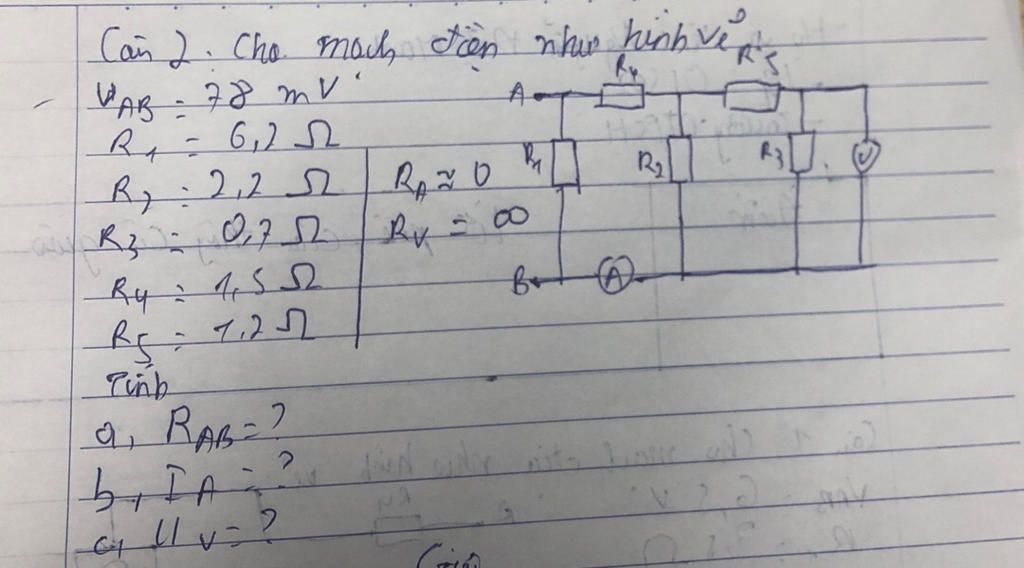 Câu 2. Cho mạch điện như hình vẽ
UAB = 78 mV
R1 = 6,2 Ω
R2 = 2,2 Ω
R3 = 0,7 Ω
R4 = 1,5 Ω
R5 = 1,2 Ω
RA ≈ 0
RV = ∞
A R4 R5
R1 R2 R3 V
B A
Tính
a, RAB = ?
b, IA = ?
c, UV = ?